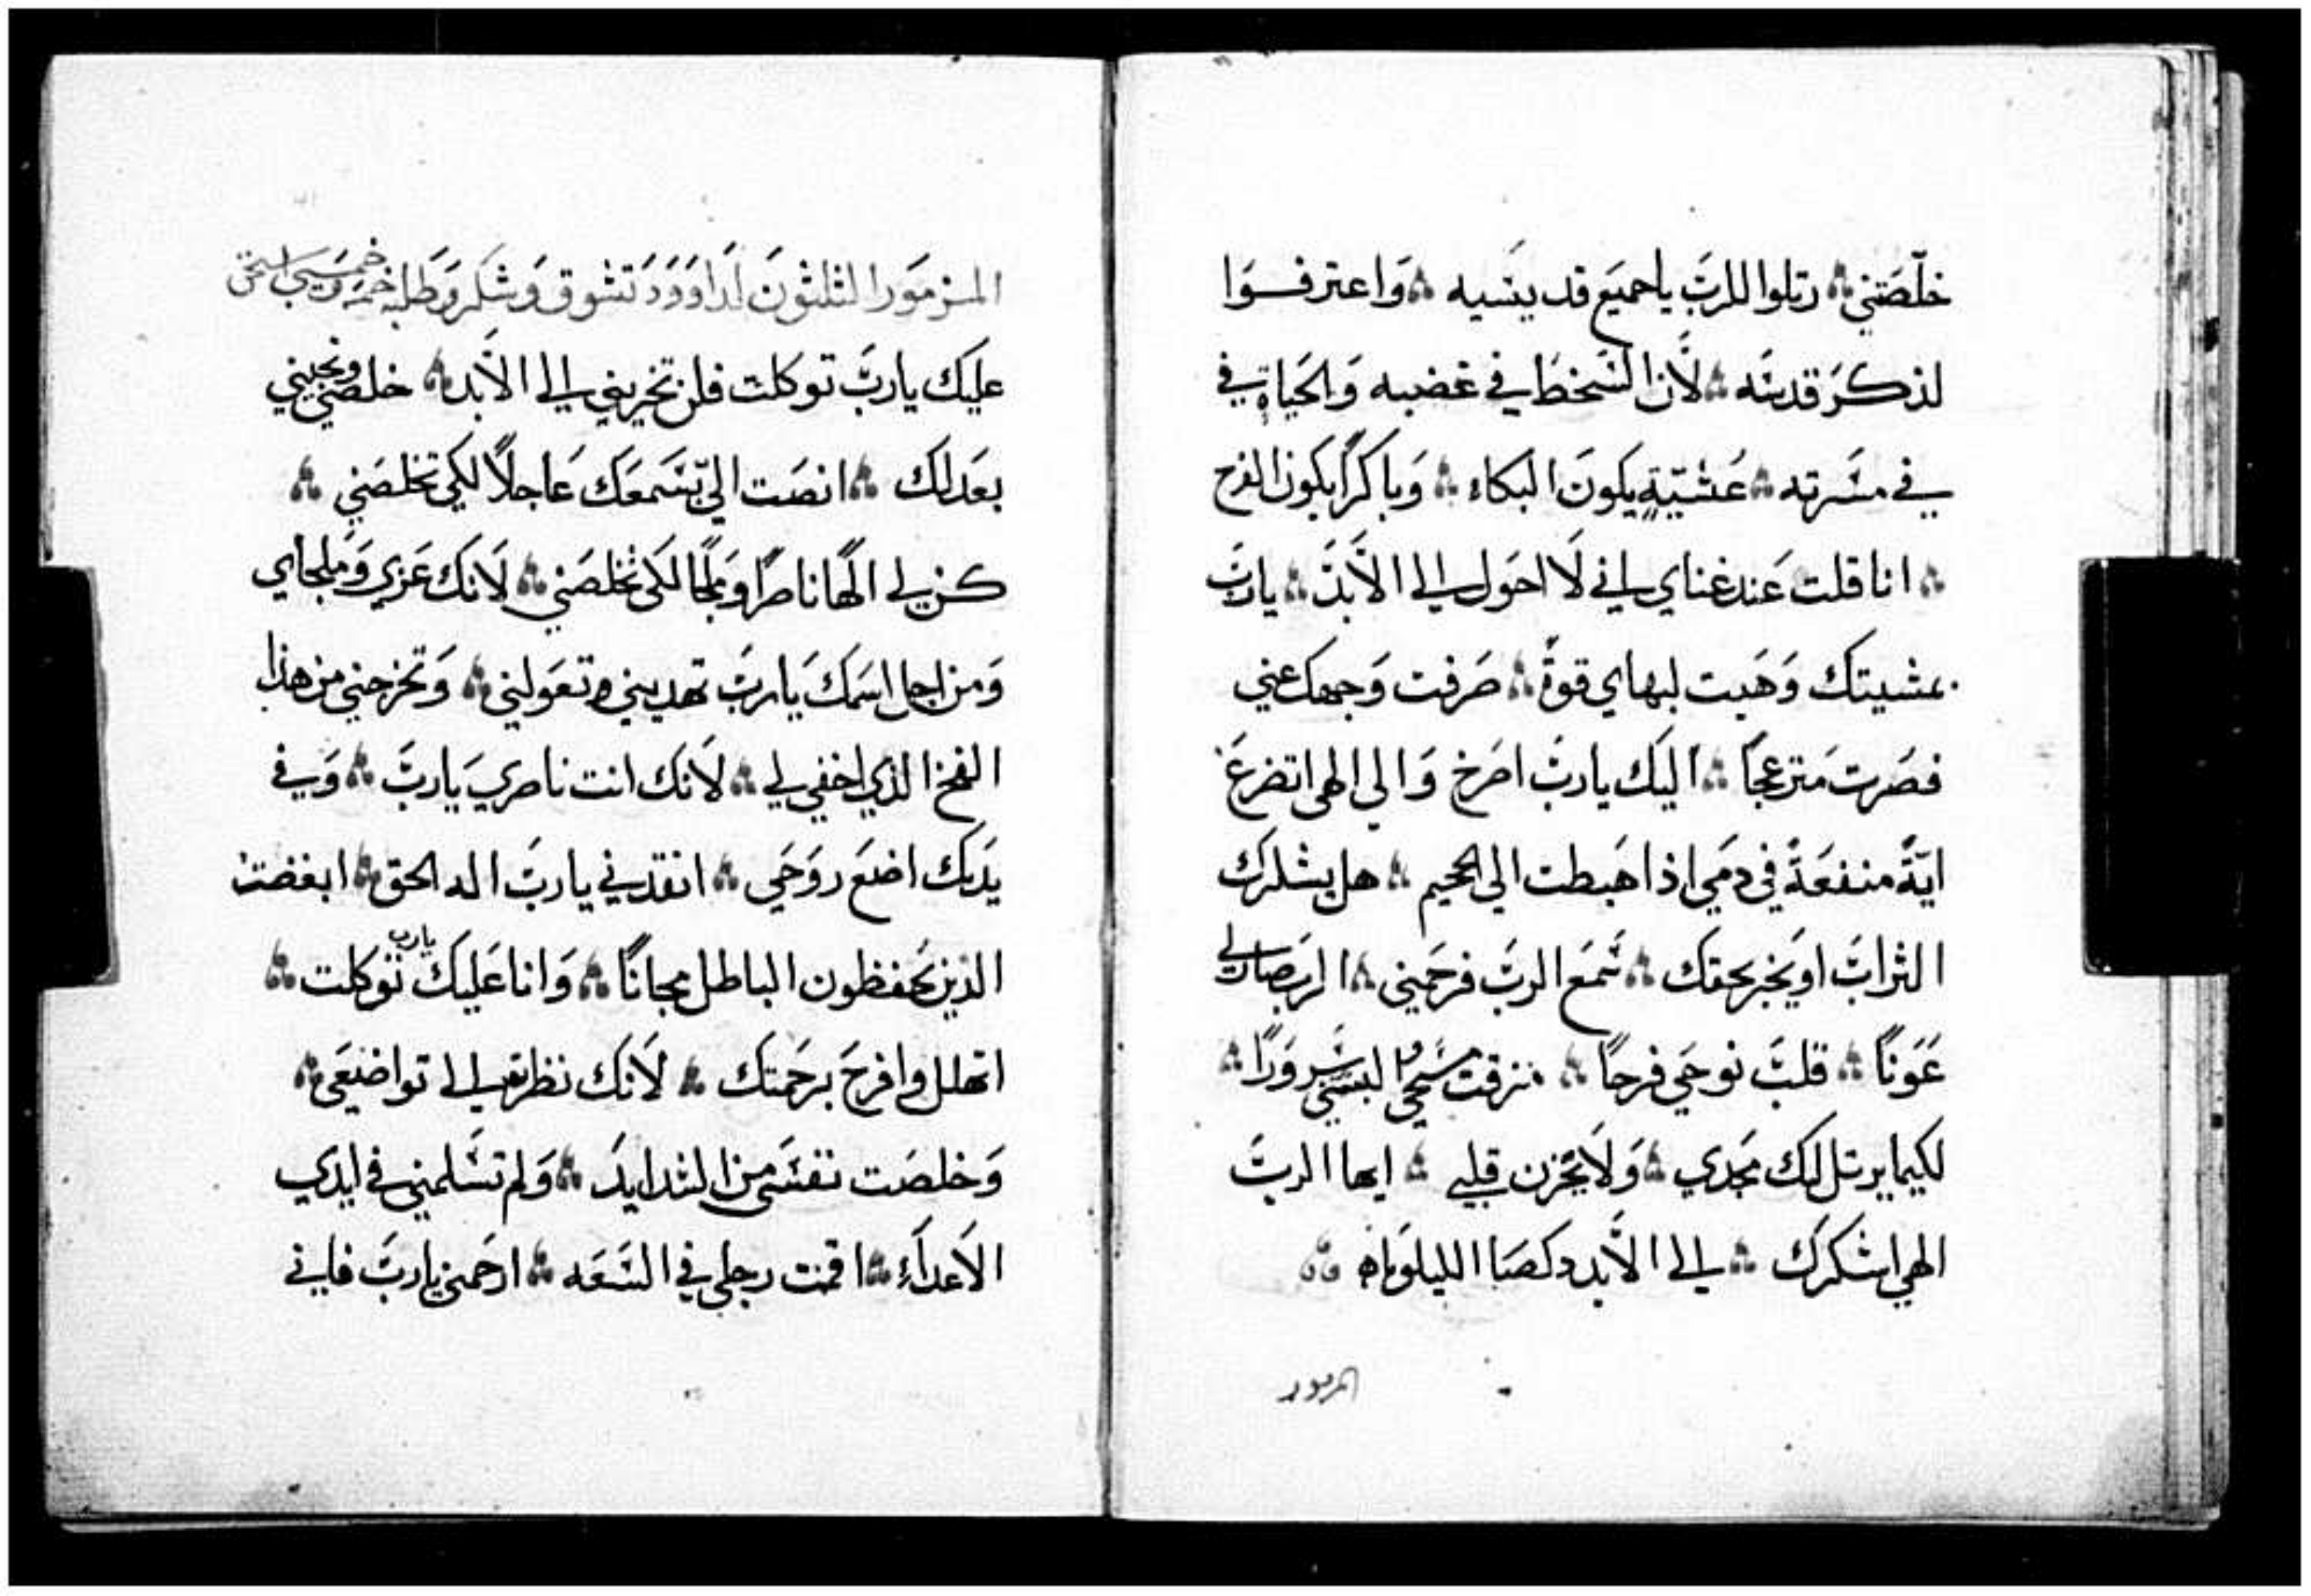 خلّصَتني ۞ رتلوا للربَ يا جميَع قديسَيه ۞ وَاعترفوَا
لذكرَ قدسَه ۞ لأن السَخطَ في غضبه وَالحَياة في
في مسَرته ۞ عَشيّةٍ يكونَ البكاء ۞ وَباكرًا يكون الفرح
۞ انا قلت عَند غناي اني لَا احوَل الي الأبدَ ۞ ياربَ
بمشيتك وَهَبت لبهاي قوةً ۞ صَرفت وَجهك عني
فصَرت منزعجًا ۞ اليَك ياربَ اصَرخ وَالي الهي اتضرعَ
ايّةَ منفعَةً في دَمي اذا هَبطت الي الجحيم ۞ هل يشكرك
الترابَ او يخبر بحقك ۞ سَمَع الربَ فرحَمني ۞ الربَ صار لي
عَوَنًا ۞ قلبَت نوحَي فرحًا ۞ مزقت مسَحي والبسَني سَروَرًا ۞
لكيما يرتل لك مجَدي ۞ وَلَا يحَزن قلبي ۞ ايها الربَ
الهي اشَكرَك ۞ الي الأبد وكصَا الليلوَياه
المزمور
المزموَر الثلثوَن لَداوَوَدَ تشوق وَشَكر وَطلبه خمسَه
عليَك ياربَ توكلت فلن تخزيني الي الأَبد ۞ خلصَني ونجيني
بعَدلك ۞ انصَت اليّ بسَمعَك عَاجلًا لكي تخلصَني ۞
كن لي الهًا ناصرًا وَملجًا لكي تخلصَني ۞ لَانك عَزي وَملجأي
وَمن اجل اسَمَك يَاربَ تهديني وتعَولني ۞ وَتخرجني من هذا
الفخ الذي اخفي لي ۞ لَانك انت ناصري يَاربَ ۞ وَفي
يَديَك اضعَ روَحَي ۞ انقدني ياربَ اله الحق ۞ ابغضت
الذين يحَفظون الباطل مجانًا ۞ وَانا عَليَك يارب توَكلت ۞
اتهلل وافرحَ برحَمتك ۞ لَانك نظرت الي تواضعَي ۞
وَخلصَت نفسَي من الشدايدَ ۞ وَلم تسَلمني في ايدي
الَاعدآَء ۞ اقمت رجلي في السَعَه ۞ ارحَمني ياربَ فاني